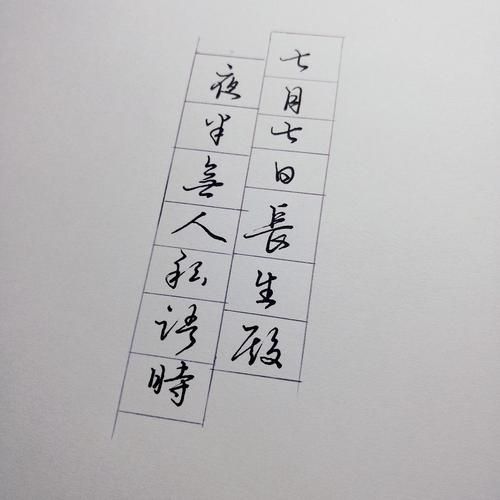 七月七日長生殿
夜半無人私語時